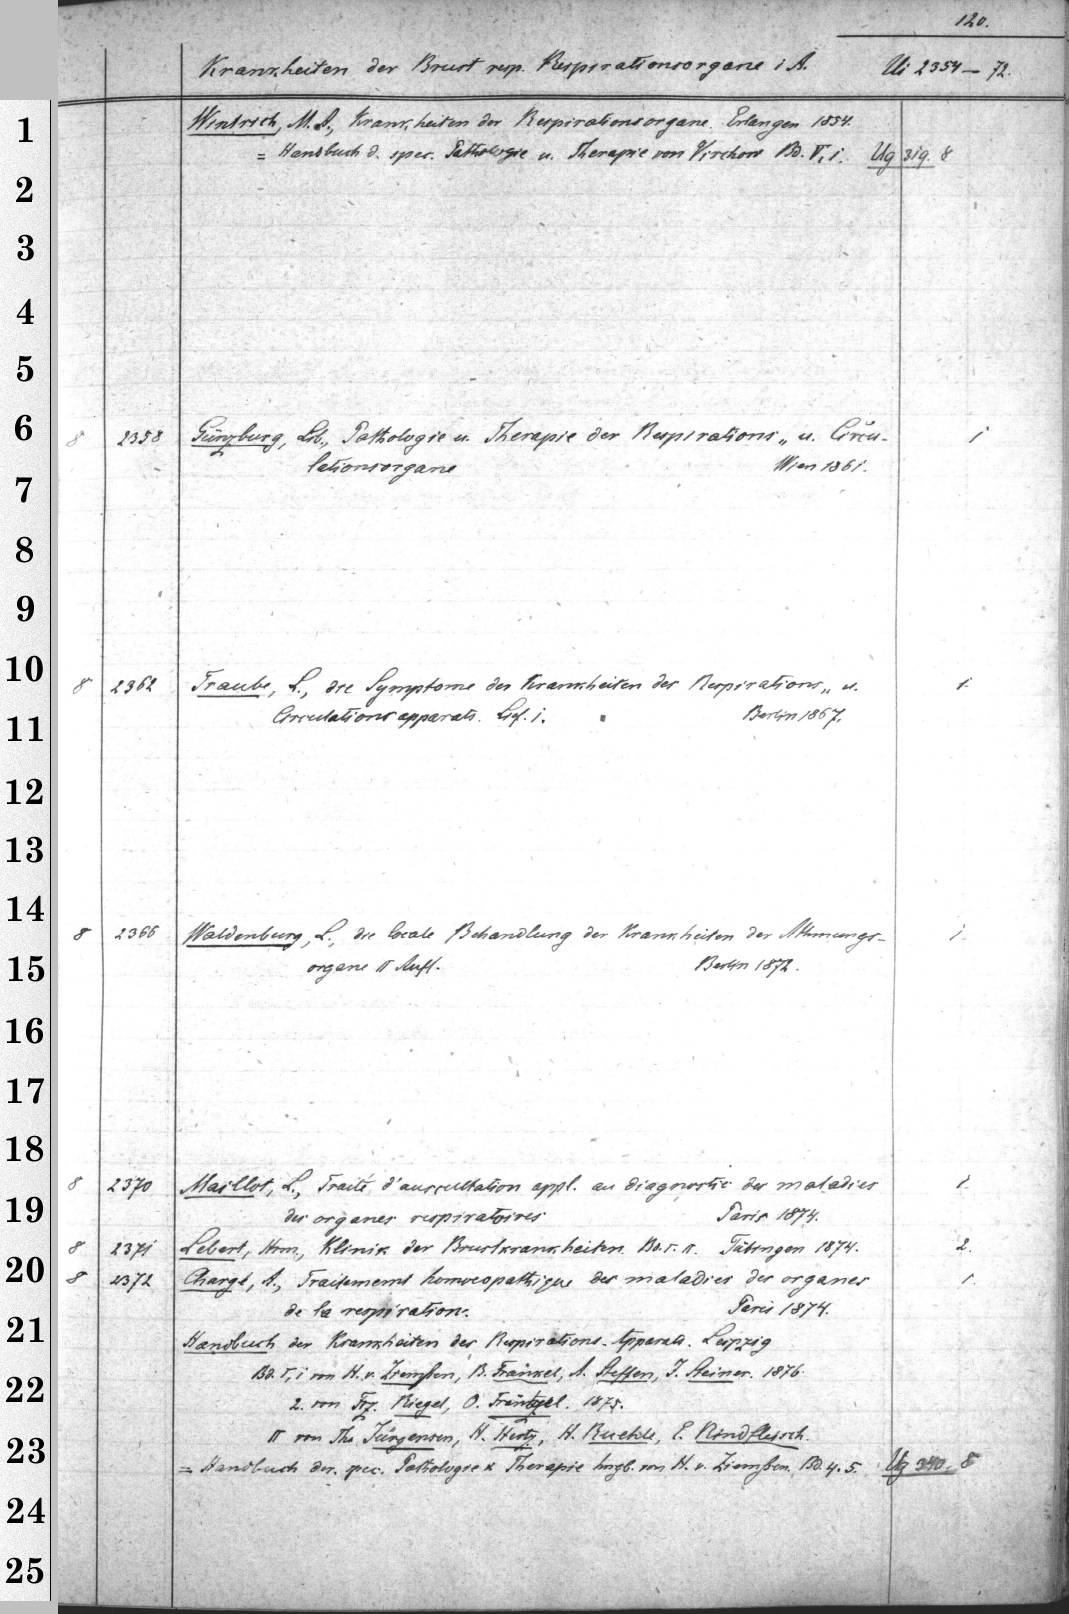 120.
Krankheiten der Brust resp. Respirationsorgane i A. Ui 2354 — 72.
1
Wintrich, M. A., Krankheiten der Respirationsorgane. Erlangen 1854.
= Handbuch d. spec. Pathologie u. Therapie von Virchow Bd. V, 1. Ug 319. 8
2
3
4
5
6
8 2358 Günzburg, Lib., Pathologie u. Therapie der Respirations „ u. Circu- 1
lationsorgane Wien 1861.
7
8
9
10
8 2362 Traube, L., die Symptome der Krankheiten des Respirations „ u. 1.
Circulationsapparats. Lief. 1. Berlin 1867.
11
12
13
14
8 2366 Waldenburg, L., die locale Behandlung der Krankheiten der Athmungs- 1.
organe II Aufl. Berlin 1872.
15
16
17
18
8 2370 Maillot, L., Traité d'auscultation appl. au diagnostic des maladies 1.
des organes respiratoires Paris 1874.
19
8 2371 Lebert, Hrm., Klinik der Brustkrankheiten. Bd. I. II. Tübingen 1874. 2.
20
8 2372 Chargé, A., Traitement homoeopathique des maladies des organes 1.
de la respiration. Paris 1874.
21
Handbuch der Krankheiten des Respirations-Apparats. Leipzig
Bd. I, 1 von H. v. Ziemssen, B. Fränkel, A. Steffen, J. Steiner. 1876.
22
2. von Frz. Riegel, O. Fräntzel. 1875.
II von Th. Jürgensen, H. Hertz, H. Ruehle, E. Rindfleisch.
23
= Handbuch der spec. Pathologie & Therapie hrgb. von H. v. Ziemssen. Bd. 4. 5. Ug 340. 8
24
25